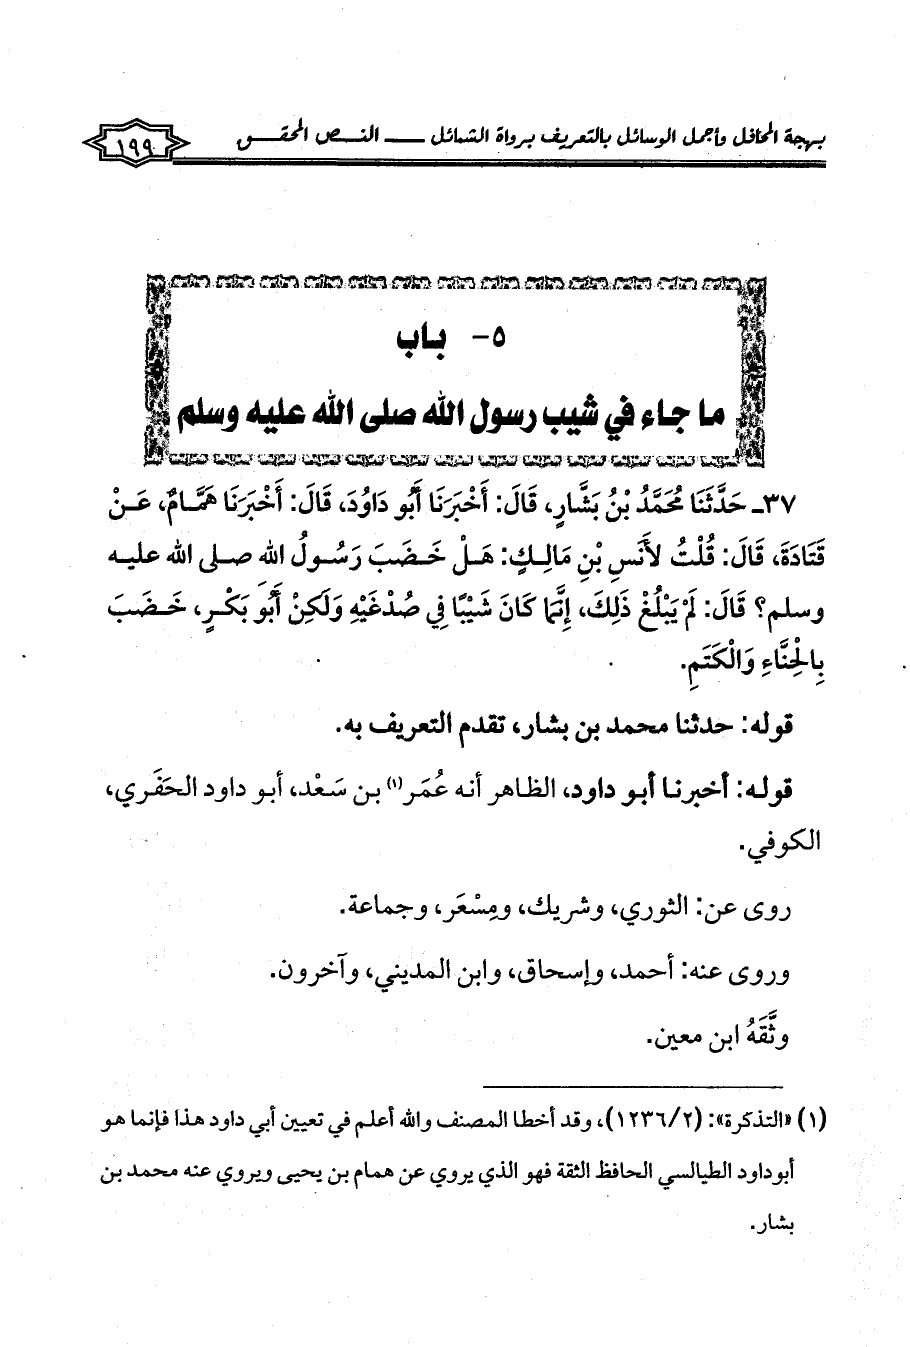 بهجة المحافل وأجمل الوسائل بالتعريف برواة الشمائل ـــ النص المحقق
١٩٩
٥- باب
ما جاء في شيب رسول الله صلى الله عليه وسلم
٣٧ـ حَدَّثَنَا مُحَمَّدُ بْنُ بَشَّارٍ، قَالَ: أَخْبَرَنَا أَبُو دَاوُدَ، قَالَ: أَخْبَرَنَا هَمَّامٌ، عَنْ
قَتَادَةَ، قَالَ: قُلْتُ لأَنَسِ بْنِ مَالِكٍ: هَلْ خَضَبَ رَسُولُ الله صلى الله عليه
وسلم؟ قَالَ: لَمْ يَبْلُغْ ذَلِكَ، إِنَّمَا كَانَ شَيْبًا فِي صُدْغَيْهِ وَلَكِنْ أَبُو بَكْرٍ، خَضَبَ
بِالْحِنَّاءِ وَالْكَتَمِ.
قوله: حدثنا محمد بن بشار، تقدم التعريف به.
قوله: أخبرنا أبو داود، الظاهر أنه عُمَر(١) بن سَعْد، أبو داود الحَفَري،
الكوفي.
روى عن: الثوري، وشريك، ومِسْعَر، وجماعة.
وروى عنه: أحمد، وإسحاق، وابن المديني، وآخرون.
وثَّقَهُ ابن معين.
(١) «التذكرة»: (١٢٣٦/٢)، وقد أخطا المصنف والله أعلم في تعيين أبي داود هذا فإنما هو
أبوداود الطيالسي الحافظ الثقة فهو الذي يروي عن همام بن يحيى ويروي عنه محمد بن
بشار.